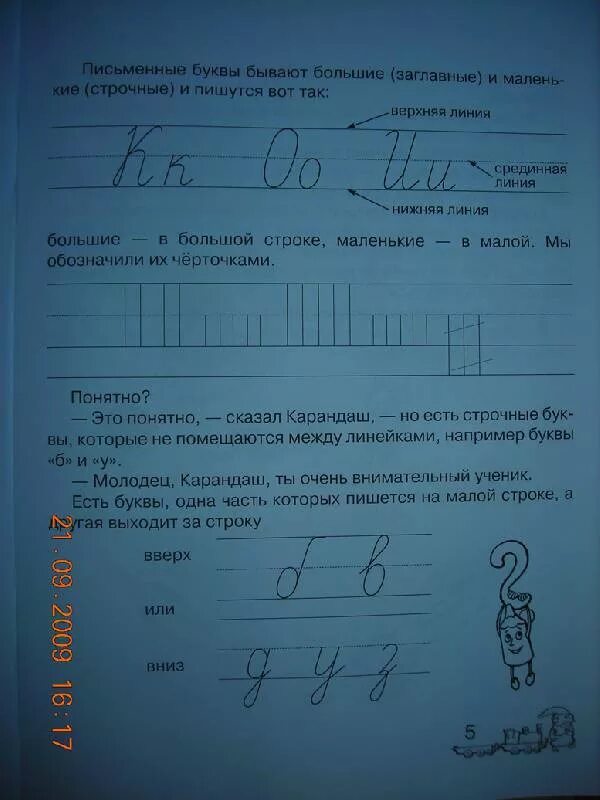 Письменные буквы бывают большие (заглавные) и малень-
кие (строчные) и пишутся вот так:
верхняя линия
Кк Оо Ии
срединная
линия
нижняя линия
большие — в большой строке, маленькие — в малой. Мы
обозначили их чёрточками.
Понятно?
— Это понятно, — сказал Карандаш, — но есть строчные бук-
вы, которые не помещаются между линейками, например буквы
«б» и «у».
— Молодец, Карандаш, ты очень внимательный ученик.
Есть буквы, одна часть которых пишется на малой строке, а
другая выходит за строку
вверх
б в
или
вниз
д у з
5
21.09.2009 16:17